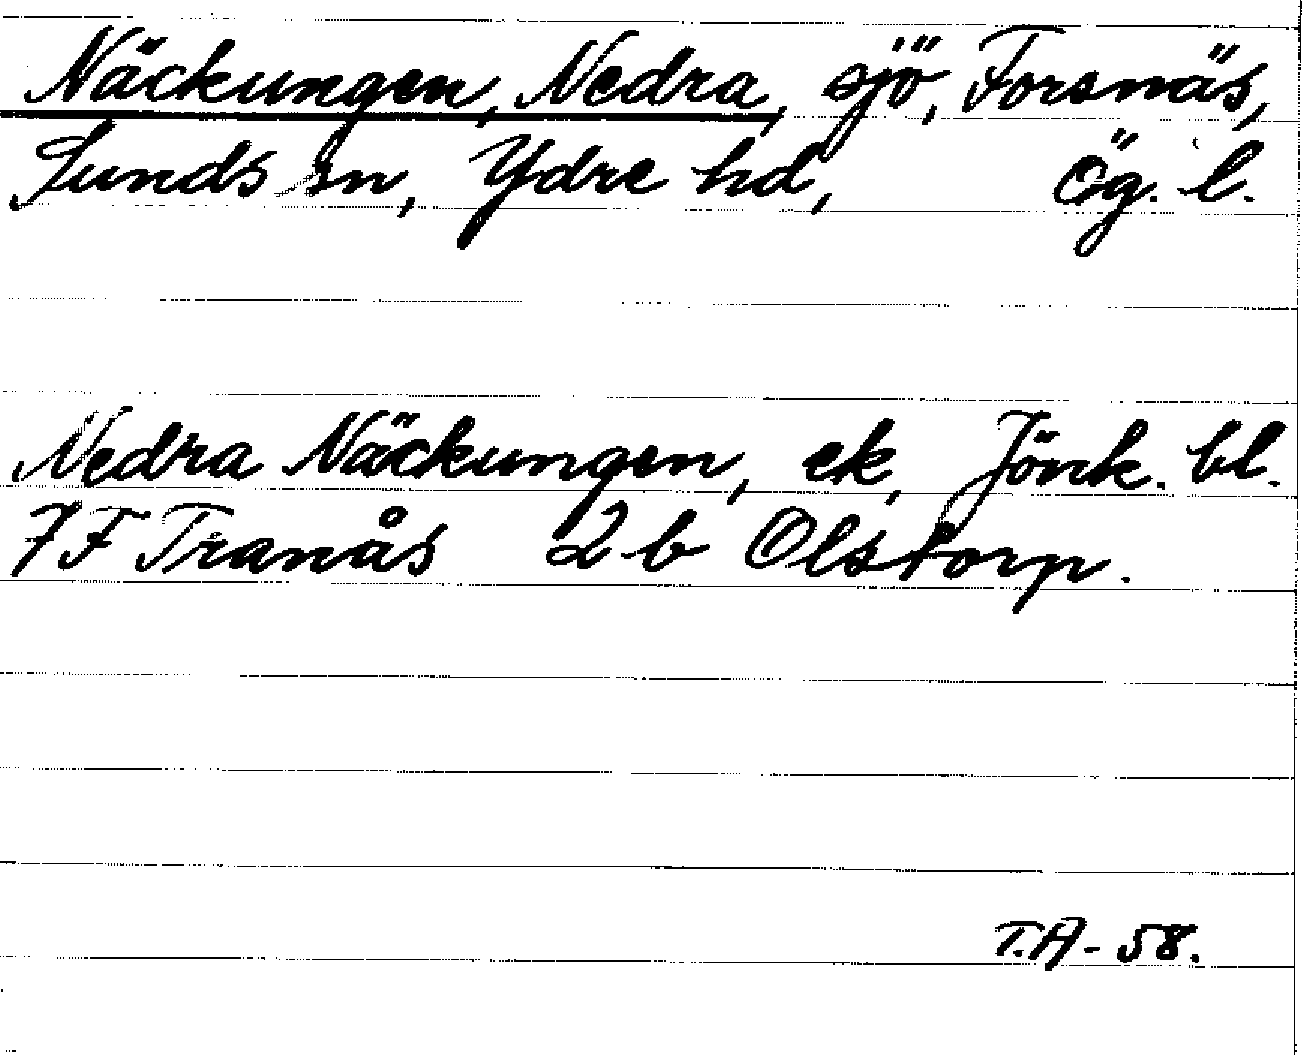 Näckungen, Nedra, sjö, Forsnäs,
Sunds sn, Ydre hd, Ög. l.
Nedra Näckungen, ek, Jönk. bl.
7F Tranås 2 b Olstorp.
T.A - 58.